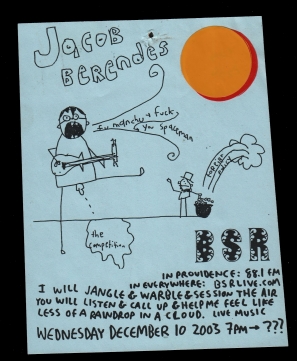 Jacob
BERENdES
fuck
you spaceman
the
competition
BSR
IN PROVIDENCE: 88.1 FM
IN EVERYWHERE: BSRLIVE.COM
I WILL JANGLE & WARBLE & SESSION THE AIR
YOU WILL LISTEN & CALL UP & HELP ME FEEL LIKE
LESS OF A RAINDROP IN A CLOUD. LIVE MUSIC
WEDNESDAY DECEMBER 10 2003 7PM → ???